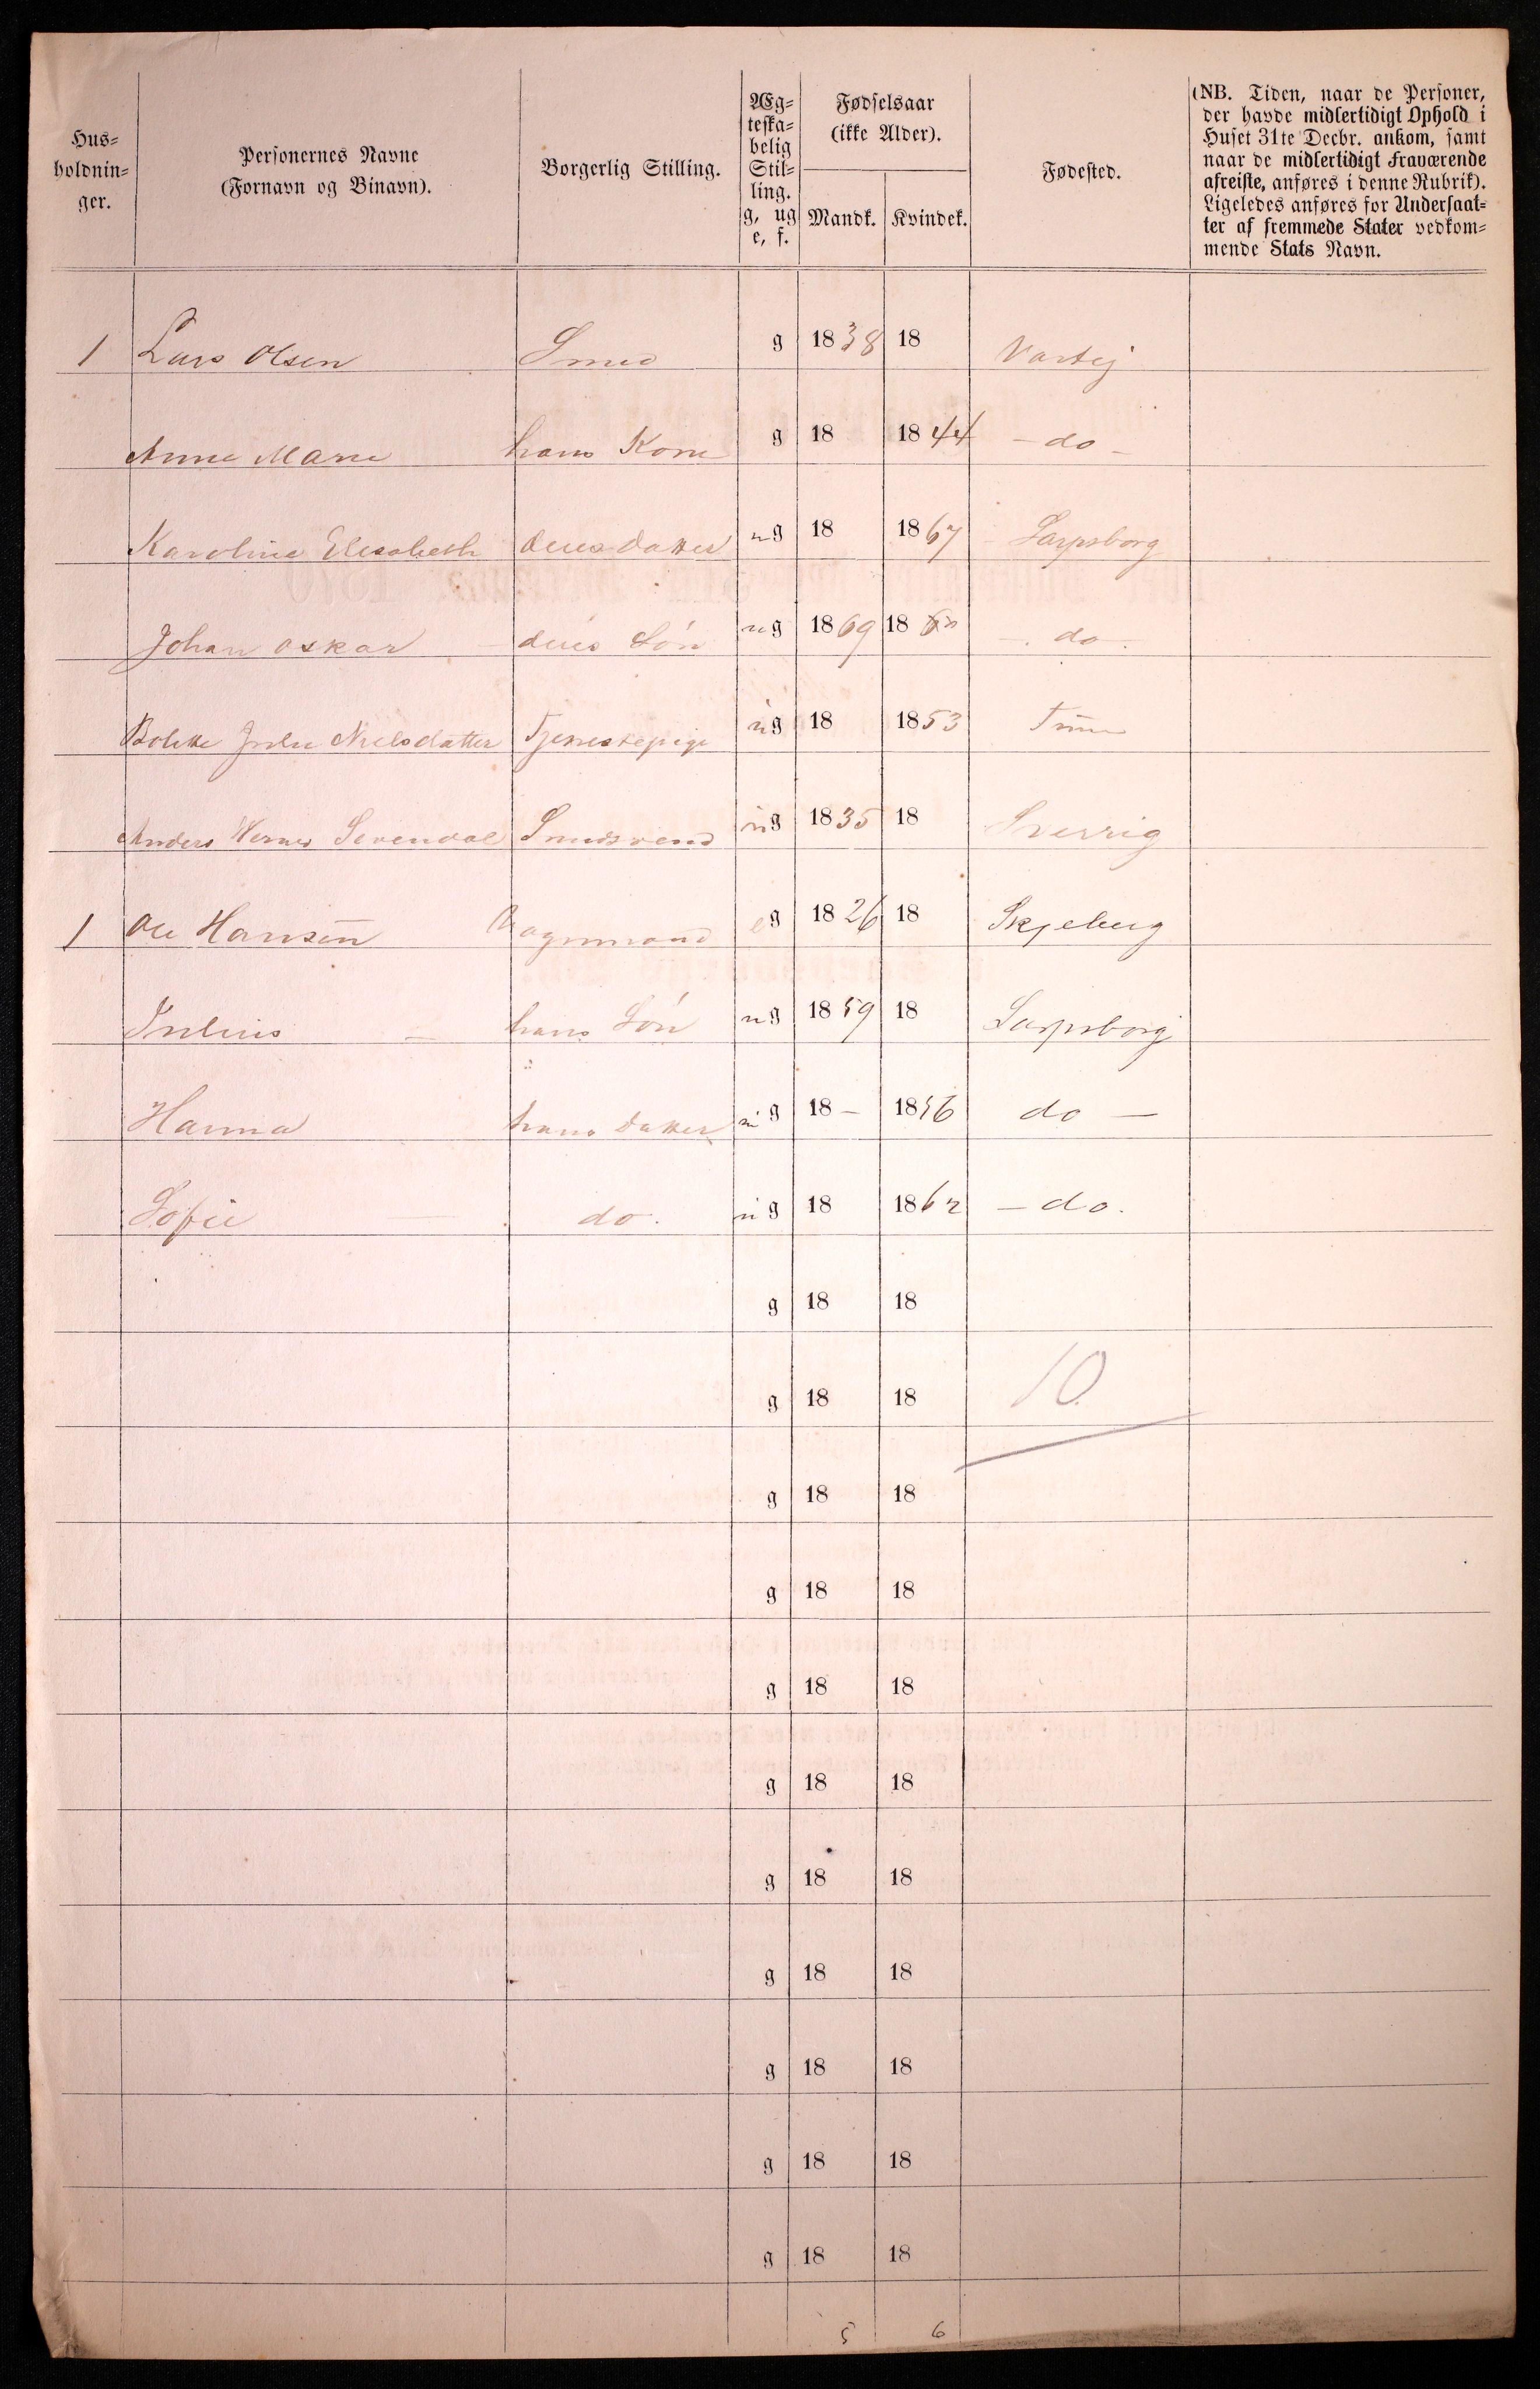 Hus-
holdnin-
ger.
Personernes Navne
(Fornavn og Binavn).
Borgerlig Stilling.
Æg-
teska-
belig
Stil-
ling.
g, ug
e, f.
Fødselsaar
(ikke Alder).
Mandk. Kvindek.
Fødested.
(NB. Tiden, naar de Personer,
der havde midlertidigt Ophold i
Huset 31te Decbr. ankom, samt
naar de midlertidigt Fraværende
afreiste, anføres i denne Rubrik).
Ligeledes anføres for Undersaat-
ter af fremmede Stater vedkom-
mende Stats Navn.
1 Lars Olsen Smed g 1838 18 Varteig
Anne Marie hans Kone g 18 1844 - do -
Karoline Elisabeth deres datter ug 18 1867 Sarpsborg
Johan Oskar - deres Søn ug 1869 18 - do -
Julie Nielsdatter Tjenestepige ug 18 1853 Tune
Anders Smedsvend ug 1835 18 Sverrig
1 Ole Hansen Vognmand eg 1826 18 Skjeberg
Julius - hans Søn ug 1859 18 Sarpsborg
Hanna hans datter ug 18 - 1856 do -
Sofie - do. ug 18 1862 - do.
g 18 18
g 18 18 10
g 18 18
g 18 18
g 18 18
g 18 18
g 18 18
g 18 18
g 18 18
g 18 18
g 18 18
5 6